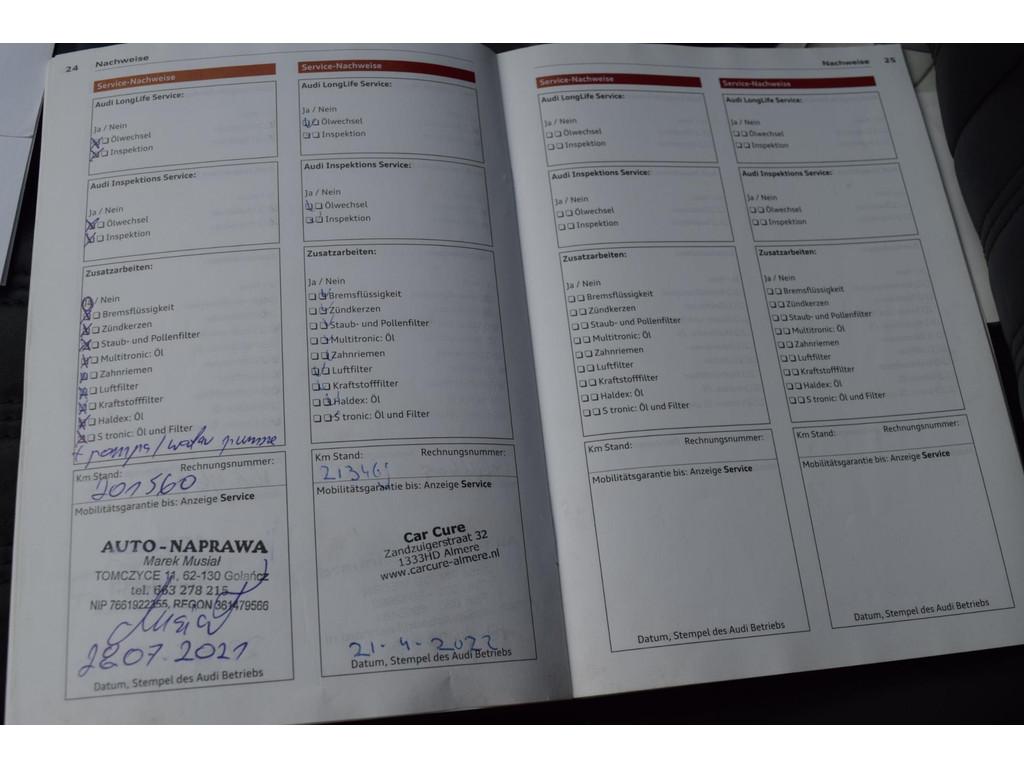 24 Nachweise
Service-Nachweise
Audi LongLife Service:
Ja / Nein
Ölwechsel
Inspektion
Audi Inspektions Service:
Ja / Nein
Ölwechsel
Inspektion
Zusatzarbeiten:
Ja / Nein
Bremsflüssigkeit
Zündkerzen
Staub- und Pollenfilter
Multitronic: Öl
Zahnriemen
Luftfilter
Kraftstofffilter
Haldex: Öl
S tronic: Öl und Filter
+ pompa/
Km Stand: Rechnungsnummer:
201560
Mobilitätsgarantie bis: Anzeige Service
AUTO-NAPRAWA
Marek Musiał
TOMCZYCE 11, 62-130 Gołańcz
tel. 663 278 215
NIP 7661922355, REGON 361479566
28.07.2021
Datum, Stempel des Audi Betriebs
Service-Nachweise
Audi LongLife Service:
Ja / Nein
Ölwechsel
Inspektion
Audi Inspektions Service:
Ja / Nein
Ölwechsel
Inspektion
Zusatzarbeiten:
Ja / Nein
Bremsflüssigkeit
Zündkerzen
Staub- und Pollenfilter
Multitronic: Öl
Zahnriemen
Luftfilter
Kraftstofffilter
Haldex: Öl
S tronic: Öl und Filter
Km Stand: Rechnungsnummer:
213465
Mobilitätsgarantie bis: Anzeige Service
Car Cure
Zandzuigerstraat 32
1333HD Almere
www.carcure-almere.nl
21-4-2022
Datum, Stempel des Audi Betriebs
Nachweise 25
Service-Nachweise
Audi LongLife Service:
Ja / Nein
Ölwechsel
Inspektion
Audi Inspektions Service:
Ja / Nein
Ölwechsel
Inspektion
Zusatzarbeiten:
Ja / Nein
Bremsflüssigkeit
Zündkerzen
Staub- und Pollenfilter
Multitronic: Öl
Zahnriemen
Luftfilter
Kraftstofffilter
Haldex: Öl
S tronic: Öl und Filter
Km Stand: Rechnungsnummer:
Mobilitätsgarantie bis: Anzeige Service
Datum, Stempel des Audi Betriebs
Service-Nachweise
Audi LongLife Service:
Ja / Nein
Ölwechsel
Inspektion
Audi Inspektions Service:
Ja / Nein
Ölwechsel
Inspektion
Zusatzarbeiten:
Ja / Nein
Bremsflüssigkeit
Zündkerzen
Staub- und Pollenfilter
Multitronic: Öl
Zahnriemen
Luftfilter
Kraftstofffilter
Haldex: Öl
S tronic: Öl und Filter
Km Stand: Rechnungsnummer:
Mobilitätsgarantie bis: Anzeige Service
Datum, Stempel des Audi Betriebs